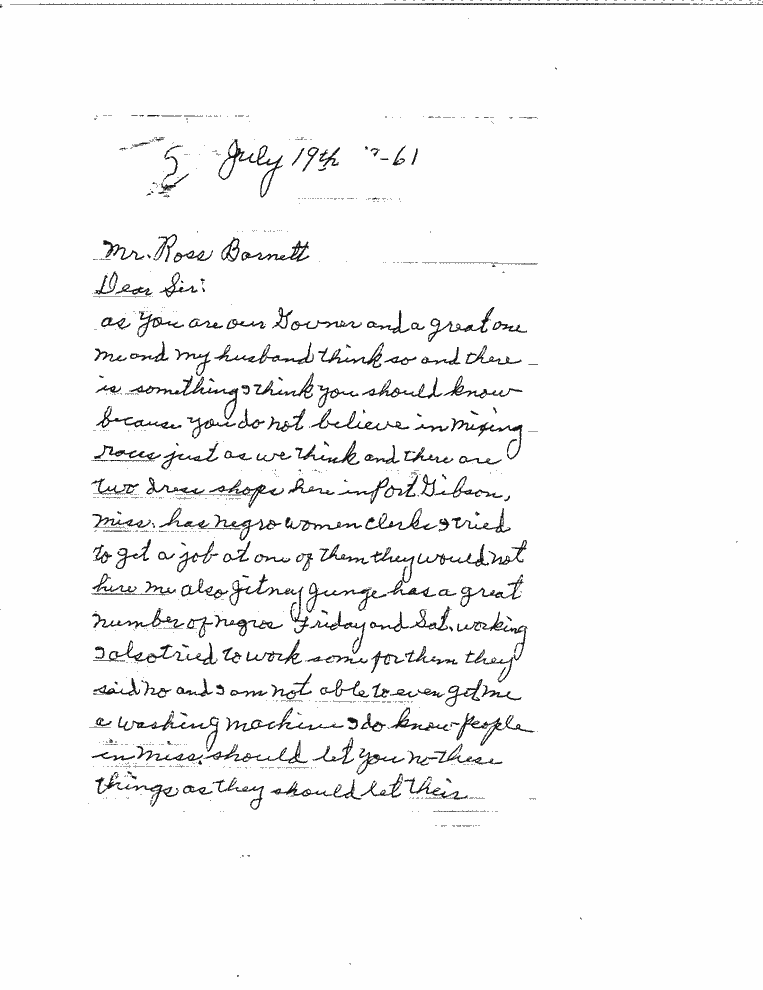 July 19th -61
Mr. Ross Barnett
Dear Sir:
as you are our Govner and a great one
me and my husband think so and there
is something I think you should know
because you do not believe in mixing
races just as we think and there are
two dress shops here in Port Gibson,
Miss. has negro women clerks I tried
to get a job at one of them they would not
hire me also Jitney Junge has a great
number of negros Friday and Sat. working
I also tried to work some for them they
said no and I am not able to even get me
a washing machine I do know people
in Miss. should let you no these
things as they should let their